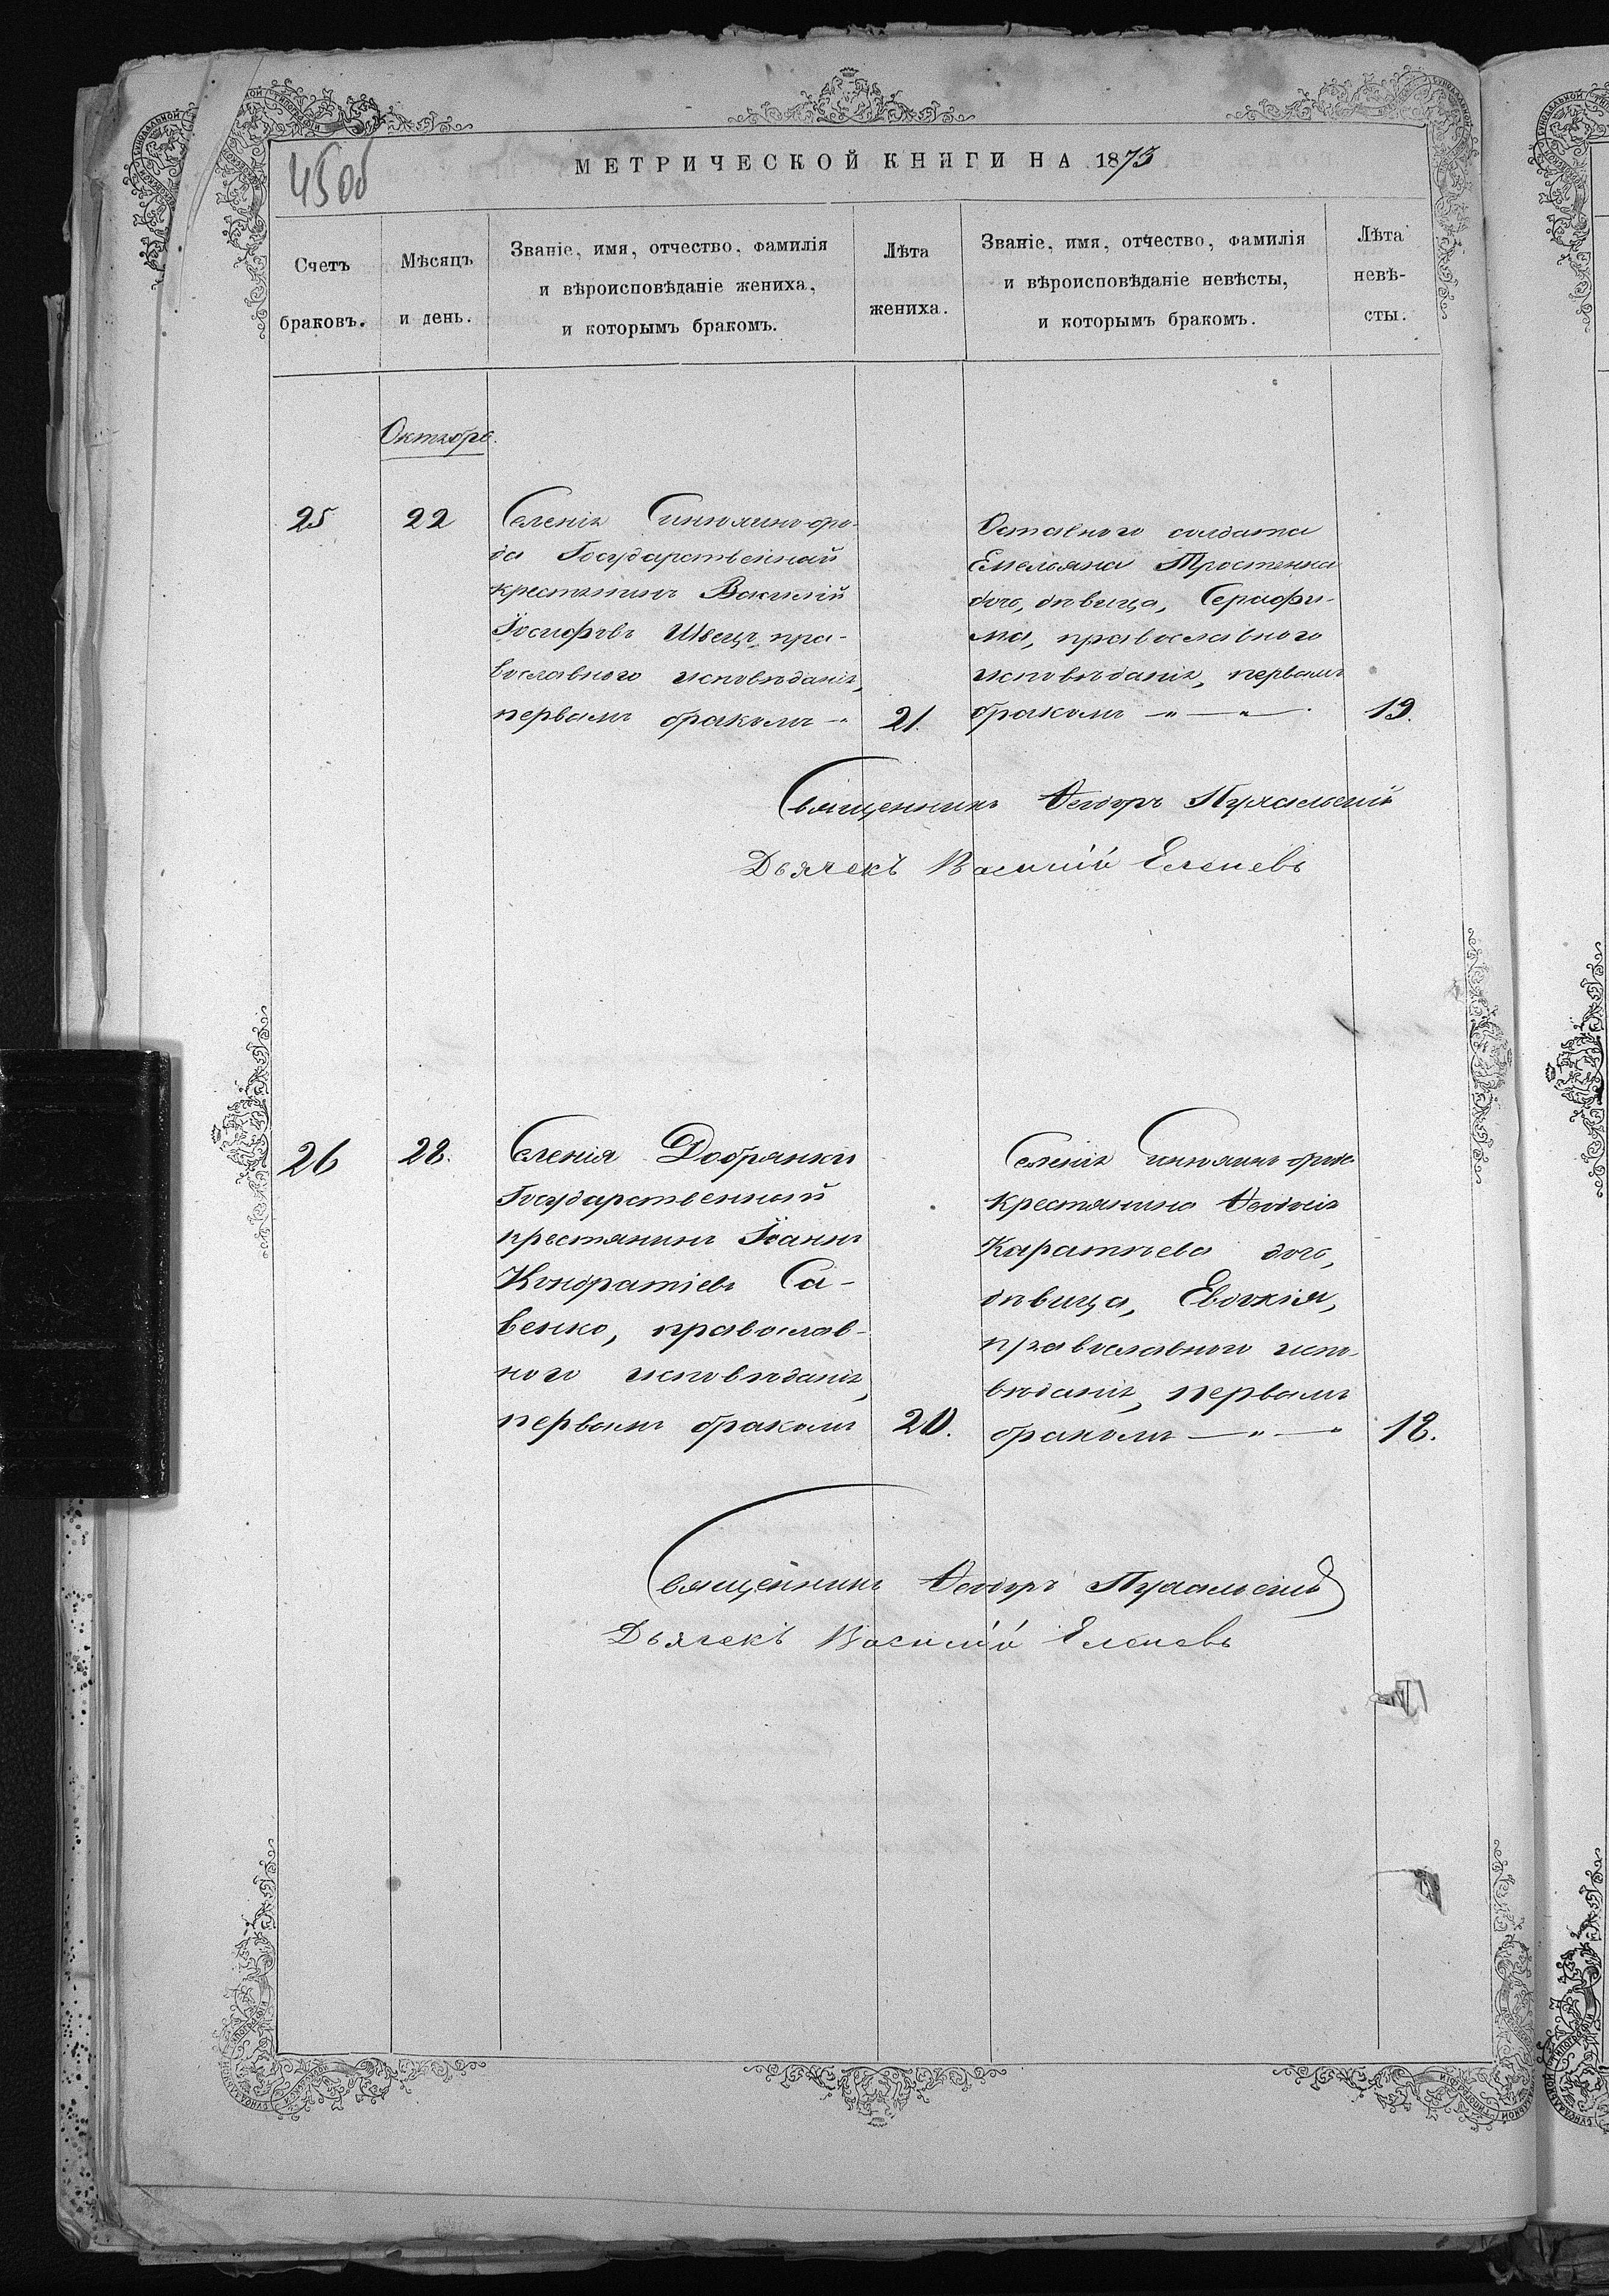 45об
МЕТРИЧЕСКОЙ КНИГИ НА 1875
Счетъ браковъ.
Мѣсяцъ и день.
Званіе, имя, отчество, фамилія
и вѣроисповѣданіе жениха,
и которымъ бракомъ.
Лѣта
жениха.
Званіе, имя, отчество, фамилія
и вѣроисповѣданіе невѣсты,
и которымъ бракомъ.
Лѣта
невѣ-
сты.
Октябрь.
25
22
Селенія Синюхино-бро-
да Государственный
крестьянинъ Василій
Іосифовъ Швецъ, пра-
вославного исповѣданія,
первымъ бракомъ
21.
Отставного солдата
Емельяна Тростенка
дочь, дѣвица, Серафи-
ма, православного
исповѣданія, первымъ
бракомъ
19.
Священникъ Ѳеодоръ
Дьячекъ Василій Еленевъ
26
28.
Селенія Добрянки
Государственный
крестянинъ Іоаннъ
Кондратіевъ Са-
венко, православ-
ного исповѣданія,
первымъ бракомъ
20.
Селенія Синюхина брода
крестянина Ѳеодосія
дочь,
дѣвица, Евдокія,
православного испо-
вѣданія, первымъ
бракомъ
18.
Священникъ Ѳеодоръ
Дьячекъ Василій Еленевъ